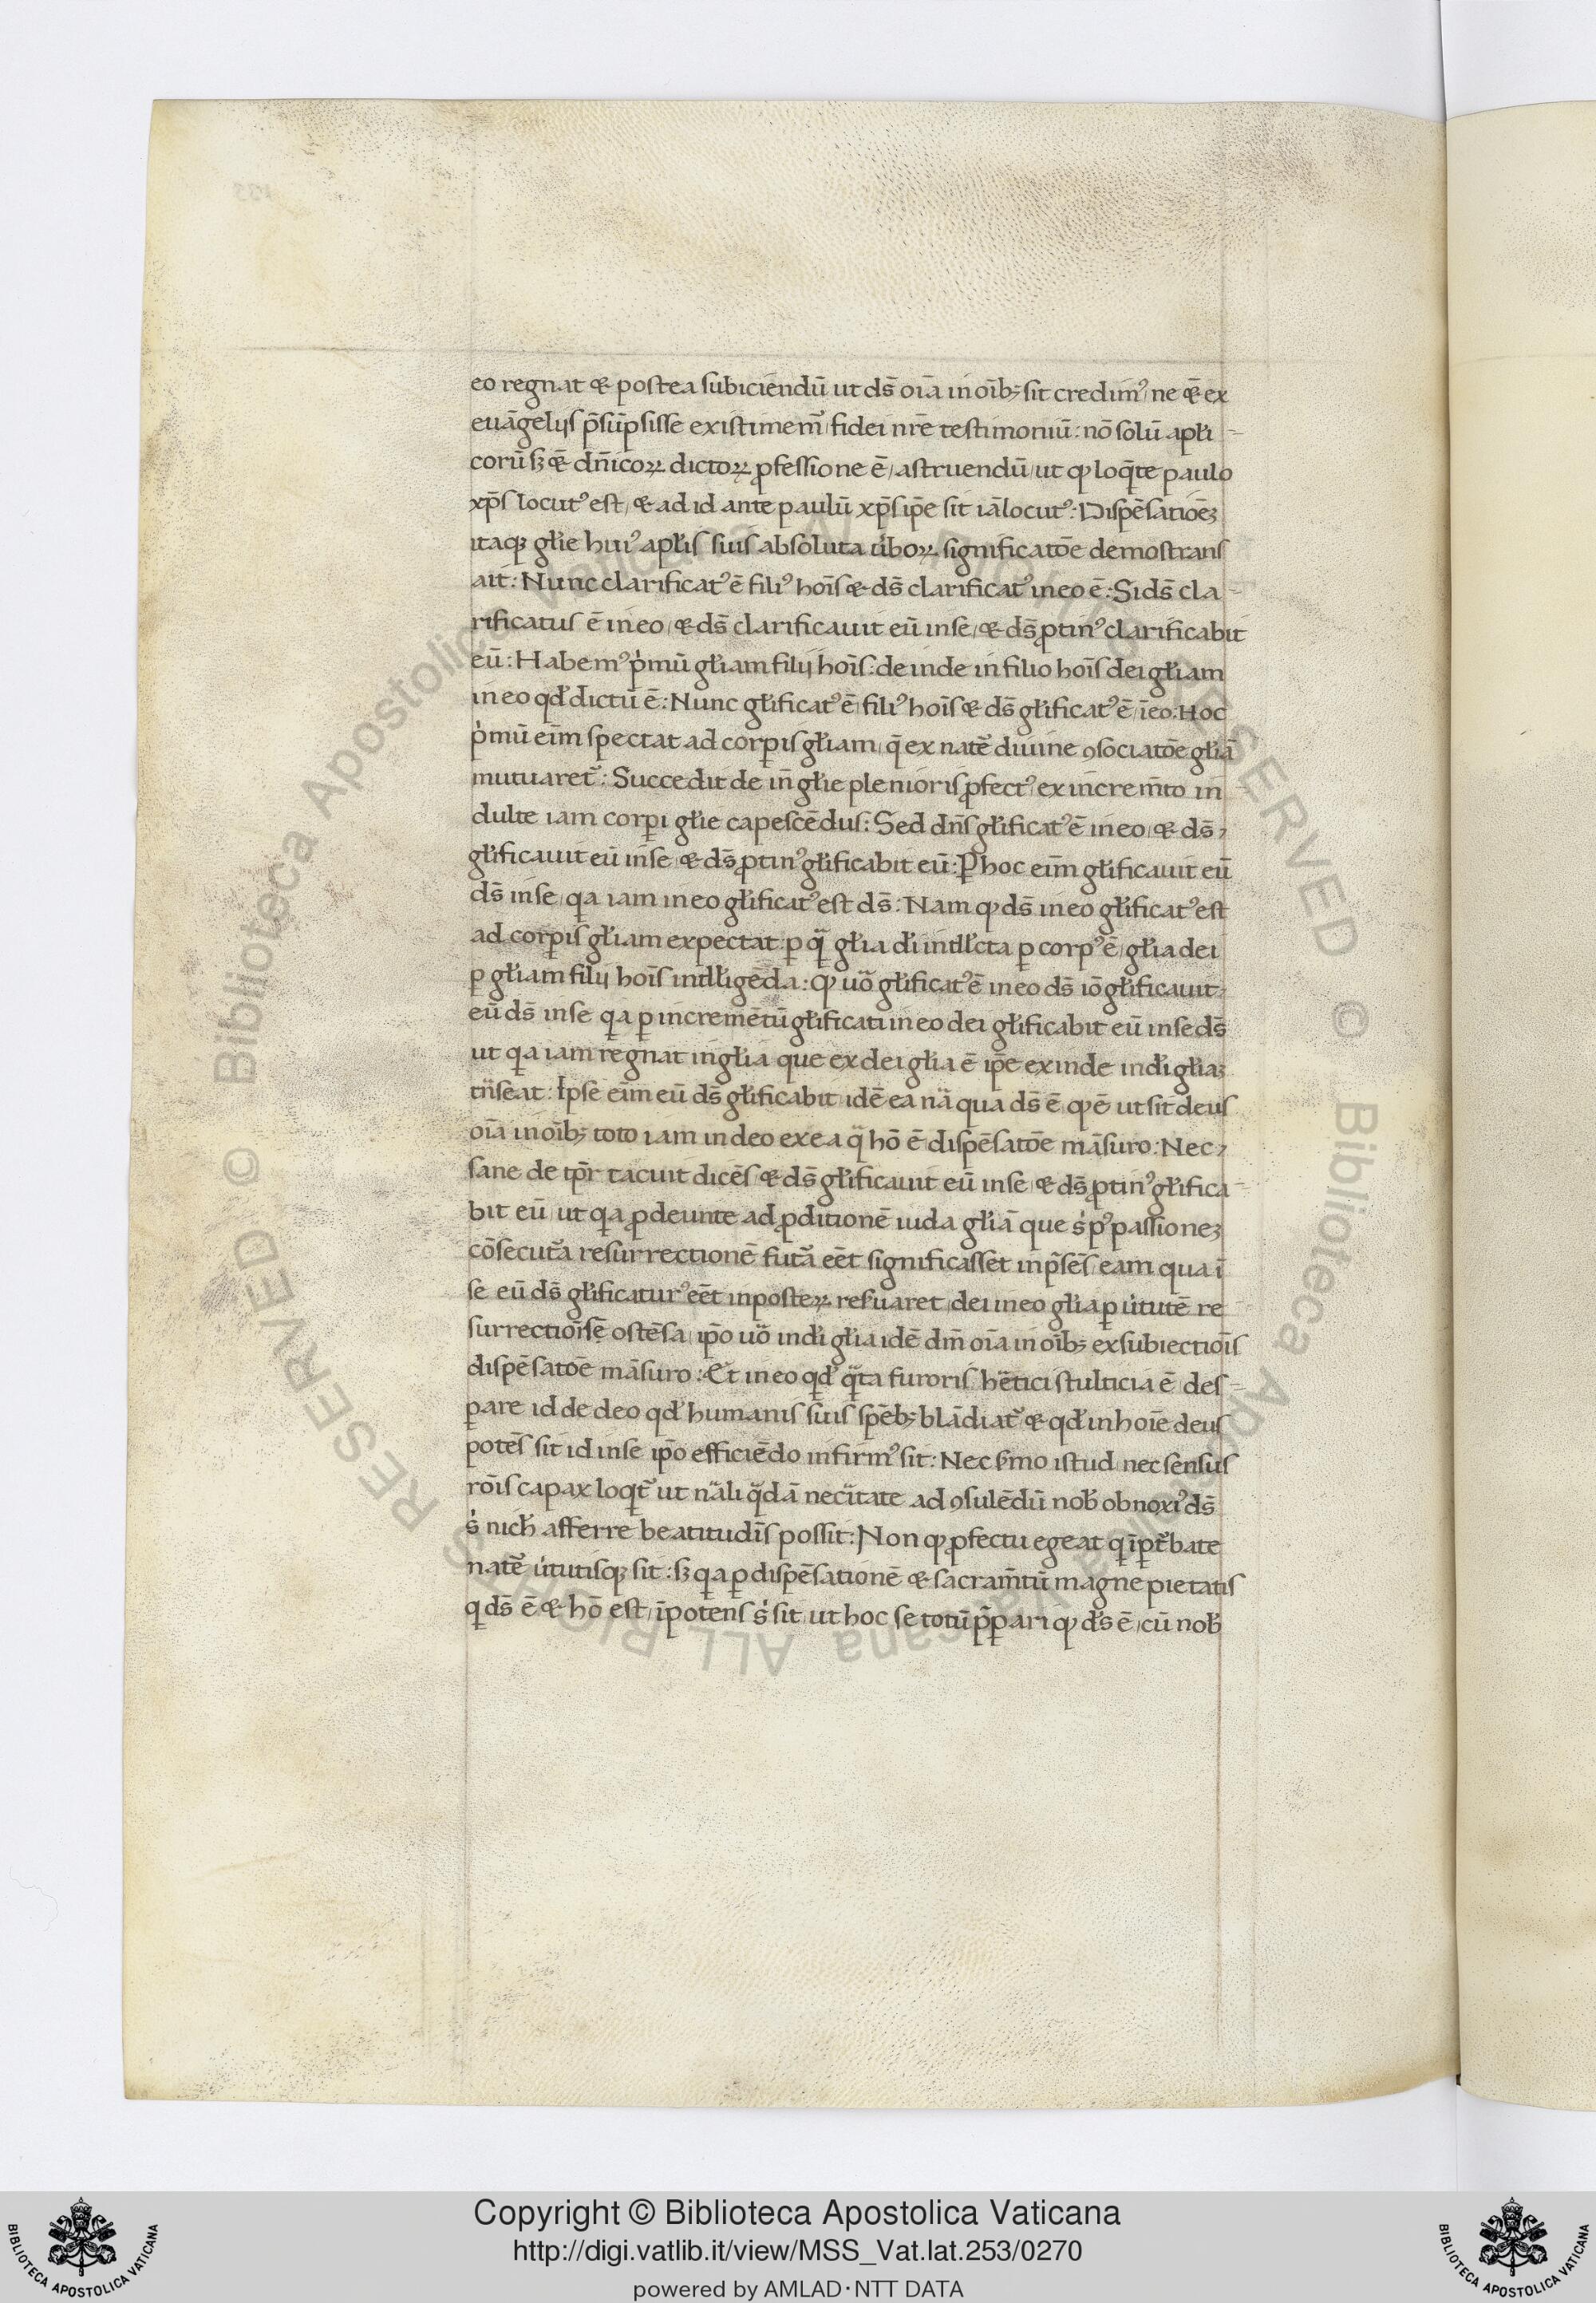 eo regnat & postea subiciendū ut ds̄ oīa in oīb; sit credimꝰ ne &̄ ex
euāgelijs p̄sūpsisse existimem᷒ fidei nr̄e testimoniū: nō solū apl̓i-
corū sꝫ &̄ dn̄icoꝝ dictoꝝ ꝓfessione ē, astruendū, ut ꝙ loq̄te paulo
xp̄s locutꝰ est, & ad id ante paulū xp̄s ip̄e sit iā locutꝰ: Dispēsatiōeꝫ
itaqꝫ gl̓ie huiꝰ apl̓is suis absoluta u̓boꝝ significatōe demostrans
ait: Nunc clarificatꝰ ē filiꝰ hoīs & ds̄ clarificatꝰ in eo ē: Si ds̄ cla-
rificatus ē in eo, & ds̄ clarificauit eū in se, & ds̄ ꝓtinꝰ clarificabit
eū: Habemꝰ p̓mū gl̓iam filij hoīs: deinde in filio hoīs dei gl̓iam
in eo qd̓ dictū ē: Nunc gl̓ificatꝰ ē filiꝰ hoīs & ds̄ gl̓ificatꝰ ē, ī eo: Hoc
p̓mū eīm spectat ad corꝑis gl̓iam, q̄ ex nat᷒e diuine ꝯsociatōe gl̓iā
mutuaret᷒: Succedit de in̄ gl̓ie plenioris ꝓfectꝰ, ex increm̄to in-
dulte iam corꝑi gl̓ie capescēdus: Sed dn̄s gl̓ificatꝰ ē in eo, & ds̄,
gl̓ificauit eū in se, & ds̄ ꝓtinꝰ gl̓ificabit eū: Ꝑ hoc eīm gl̓ificauit eū
ds̄ in se, qa iam in eo gl̓ificatꝰ est ds̄: Nam ꝙ ds̄ in eo gl̓ificatꝰ est
ad corꝑis gl̓iam expectat: ꝑ qͣ gl̓ia d̓i intll̓cta ꝑ corpꝰ ē, gl̓ia dei
ꝑ gl̓iam filij hoīs intll̓igēda: ꝙ uͦo gl̓ificatꝰ ē in eo ds̄ iō gl̓ificauit,
eū ds̄ in se qa ꝑ incremētū gl̓ificati in eo dei gl̓ificabit eū in se ds̄
ut qa iam regnat in gl̓ia que ex dei gl̓ia ē ip̄e exinde in d̓i gl̓iaꝫ
tͣnseat: Ipse eīm eū ds̄ gl̓ificabit, idē ea nͣa qua ds̄ ē, ꝙ ē ut sit deus
oīa in oīb; toto iam in deo ex ea qͣ hō ē dispēsatōe māsuro: Nec,
sane de tp̄r tacuit dicēs, & ds̄ gl̓ificauit eū in se, & ds̄ ꝓtinꝰ gl̓ifica-
bit eū, ut qa ꝓdeunte ad ꝓditionē iuda gl̓iā que s̓ pꝰ passioneꝫ
cōsecut᷒a resurrectionē fut᷒a eēt significasset in p̄sēs, eam qua ī
se eū ds̄ gl̓ificaturꝰ eēt in posteꝝ res̓uaret, dei in eo gl̓ia ꝑ u̓tutē re
surrectiōīs̄ē ostēsa, ip̄o uͦo in d̓i gl̓ia idē dn̄i oīa in oīb; ex subiectiōīs
dispēsatōe māsuro: Et in eo qd̓ qͣta furoris hͤtici stulticia ē, des-
ꝑare id de deo qd̓ humanis suis spēb; blādiat᷒ & qd̓ in hoīe deus
potēs sit id in se ip̄o efficiēdo infirmꝰ sit: Nec s̓mo istud nec sensus
rōis capax loqt᷒ ut nͣali qͣdā necͥtate ad ꝯsulēdū nob̓ obnoxiꝰ ds̄
s̓ nich̓ afferre beatitudīs possit: Non ꝙ ꝓfectu egeat q īꝑt᷒bate
nat᷒e u̓tutisqꝫ sit: sꝫ qa ꝑ dispēsationē & sacram̄tū magne pietatis
q ds̄ ē & hō est, īpotens s̓ sit, ut hoc se totū p̄ꝑari ꝙ d̓s ē, cū nob̓